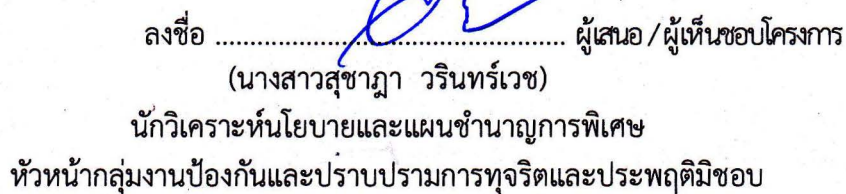 ลงชื่อ ........................................... ผู้เสนอ / ผู้เห็นชอบโครงการ
(นางสาวสุชาฎา วรินทร์เวช)
นักวิเคราะห์นโยบายและแผนชำนาญการพิเศษ
หัวหน้ากลุ่มงานป้องกันและปราบปรามการทุจริตและประพฤติมิชอบ